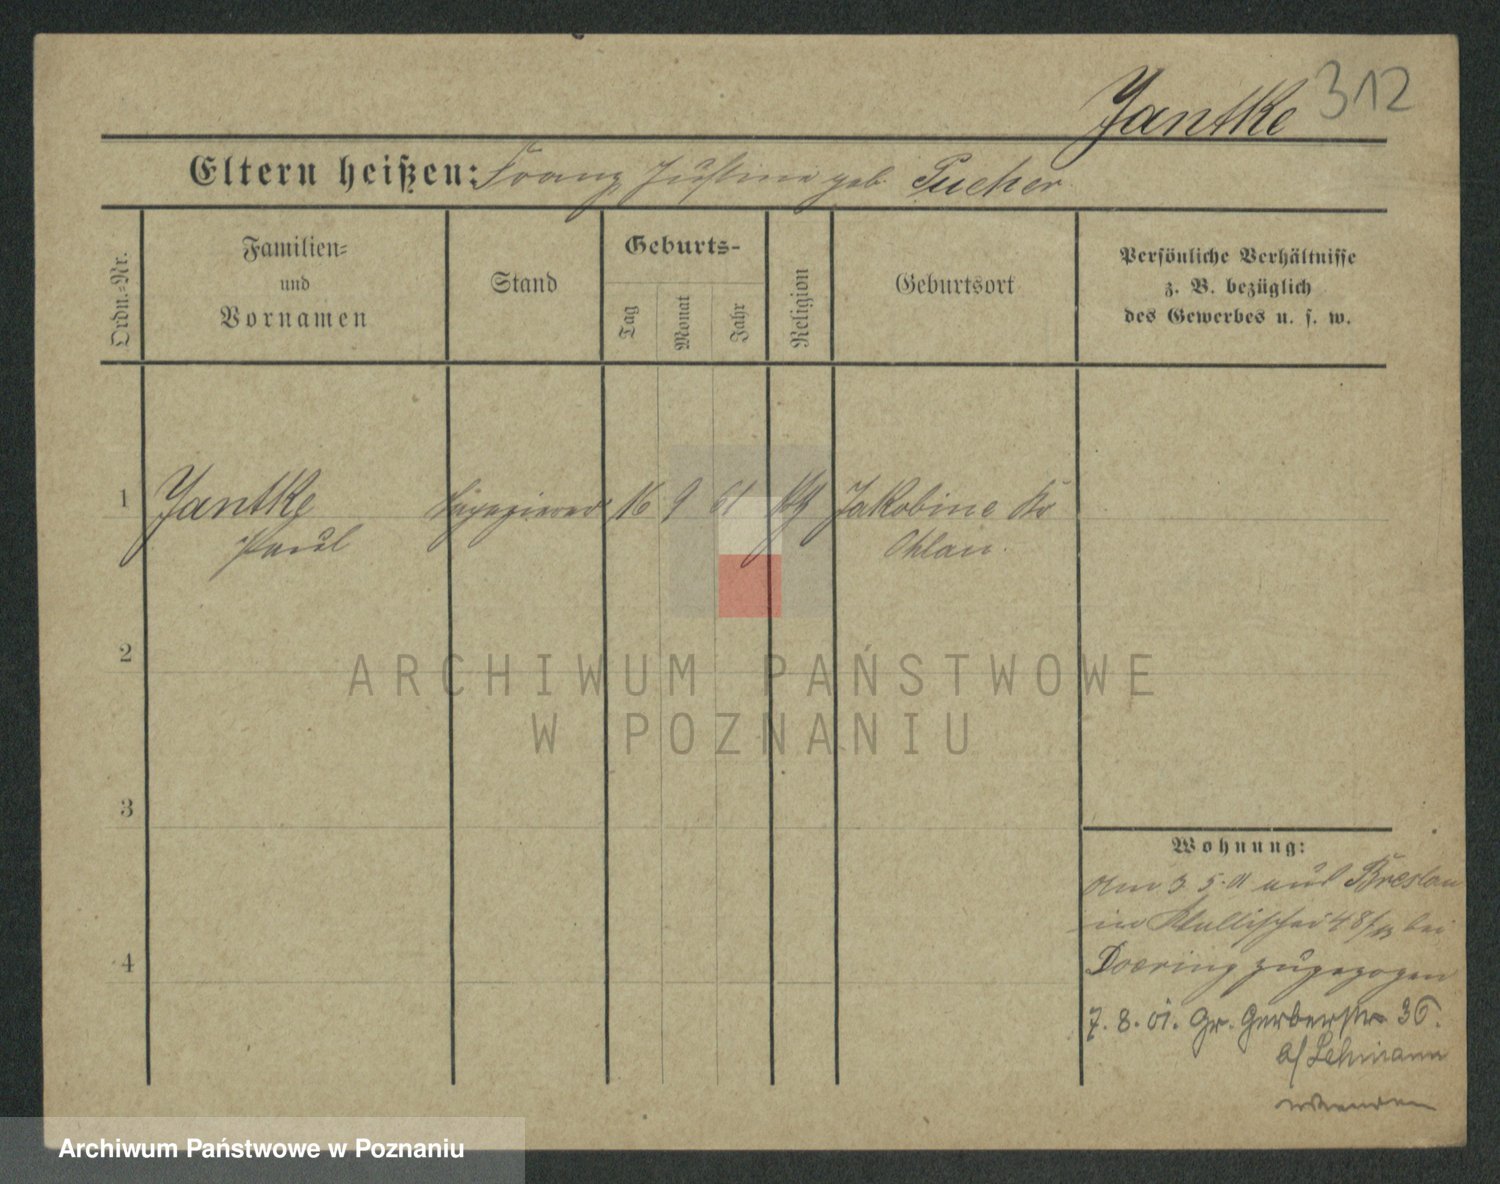 Jantke 312
Eltern heißen: Franz Justine geb. Pucher
Ordn.-Nr.
Familien-
und
Vornamen
Stand
Geburts-
Tag
Monat
Jahr
Religion
Geburtsort
Persönliche Verhältnisse
z. B. bezüglich
des Gewerbes u. s. w.
1 Jantke 16 9 61 Jakobine Kr
Paul Ohlau.
2
3
4
Wohnung:
am 3. 5. 01 aus Breslau
in Wallischei 48/ bei
Doering zugezogen
7. 8. 01. Gr. Gerberstr 36.
b/ Lehmann
ARCHIWUM PAŃSTWOWE
W POZNANIU
Archiwum Państwowe w Poznaniu